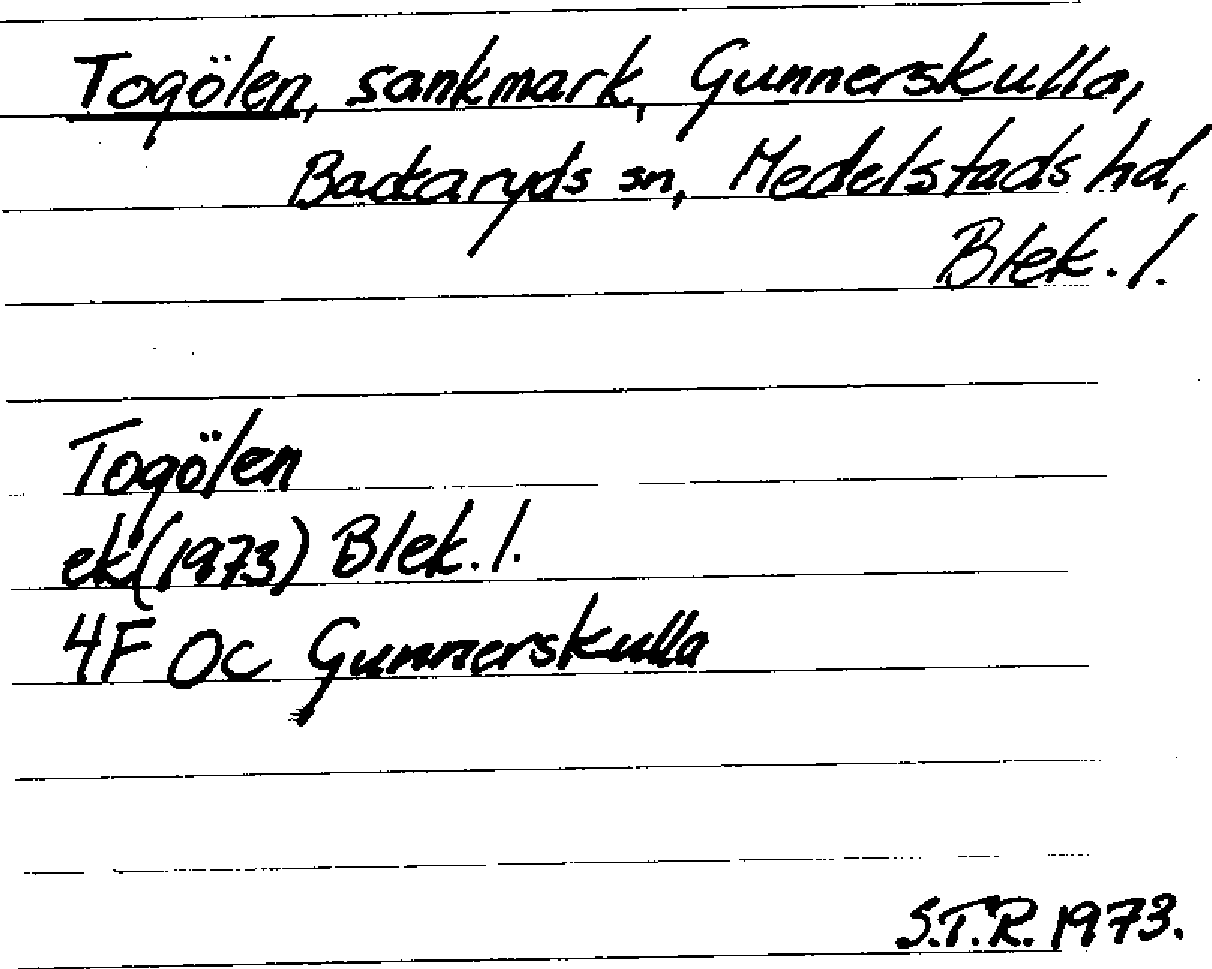 Togölen, sankmark, Gunnerskulla,
Backaryds sn, Medelstads hd,
Blek. l.
Togölen
ek (1973) Blek. l.
4F 0c Gunnerskulla
S.T.R. 1973.